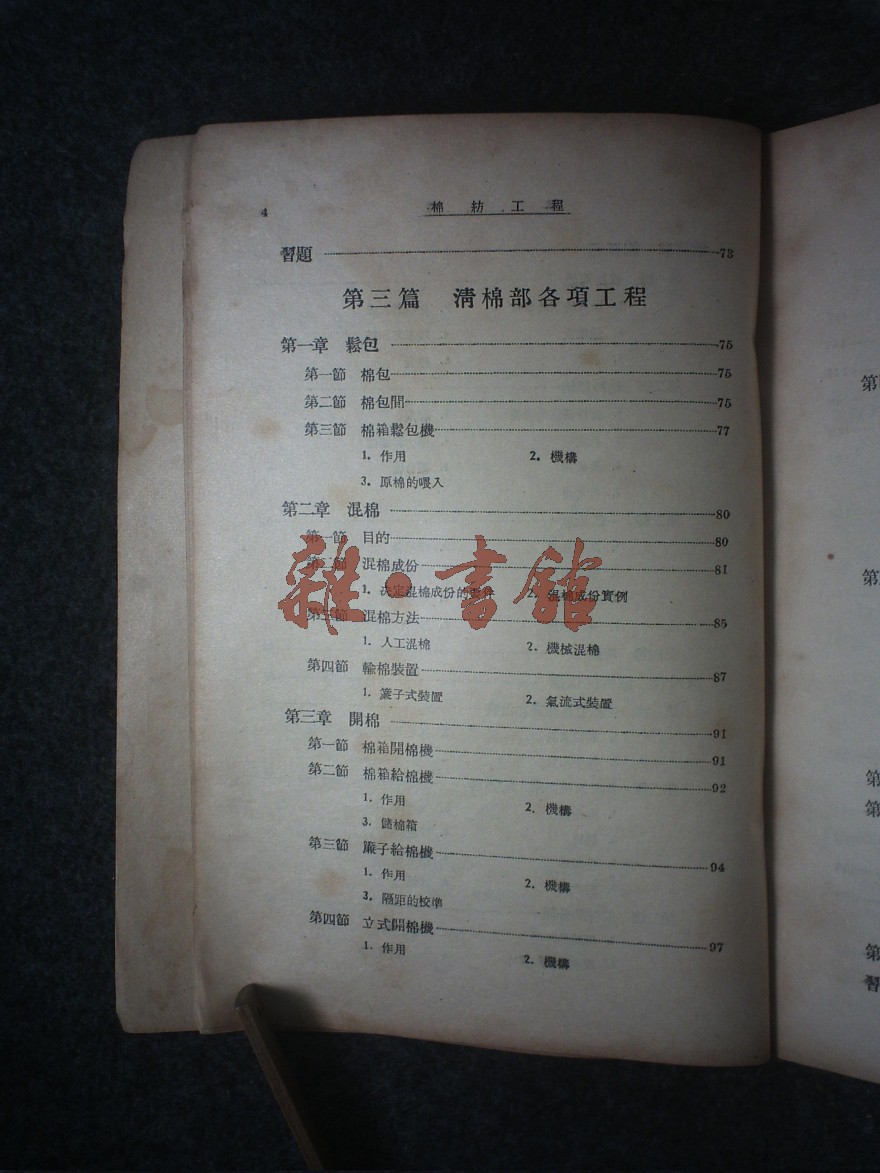 4
棉紡工程
習題 73
第三篇 淸棉部各項工程
第一章 鬆包 75
第一節 棉包 75
第二節 棉包間 75
第三節 棉箱鬆包機 77
1. 作用 2. 機構
3. 原棉的喂入
第二章 混棉 80
第一節 目的 80
第二節 混棉成份 81
1. 決定混棉成份的 2. 混棉成份實例
第三節 混棉方法 85
1. 人工混棉 2. 機械混棉
第四節 輸棉裝置 87
1. 簾子式裝置 2. 氣流式裝置
第三章 開棉 91
第一節 棉箱開棉機 91
第二節 棉箱給棉機 92
1. 作用 2. 機構
3. 儲棉箱
第三節 簾子給棉機 94
1. 作用 2. 機構
3. 隔距的校準
第四節 立式開棉機 97
1. 作用 2. 機構
雜·書館
第
第
第
第
第
習